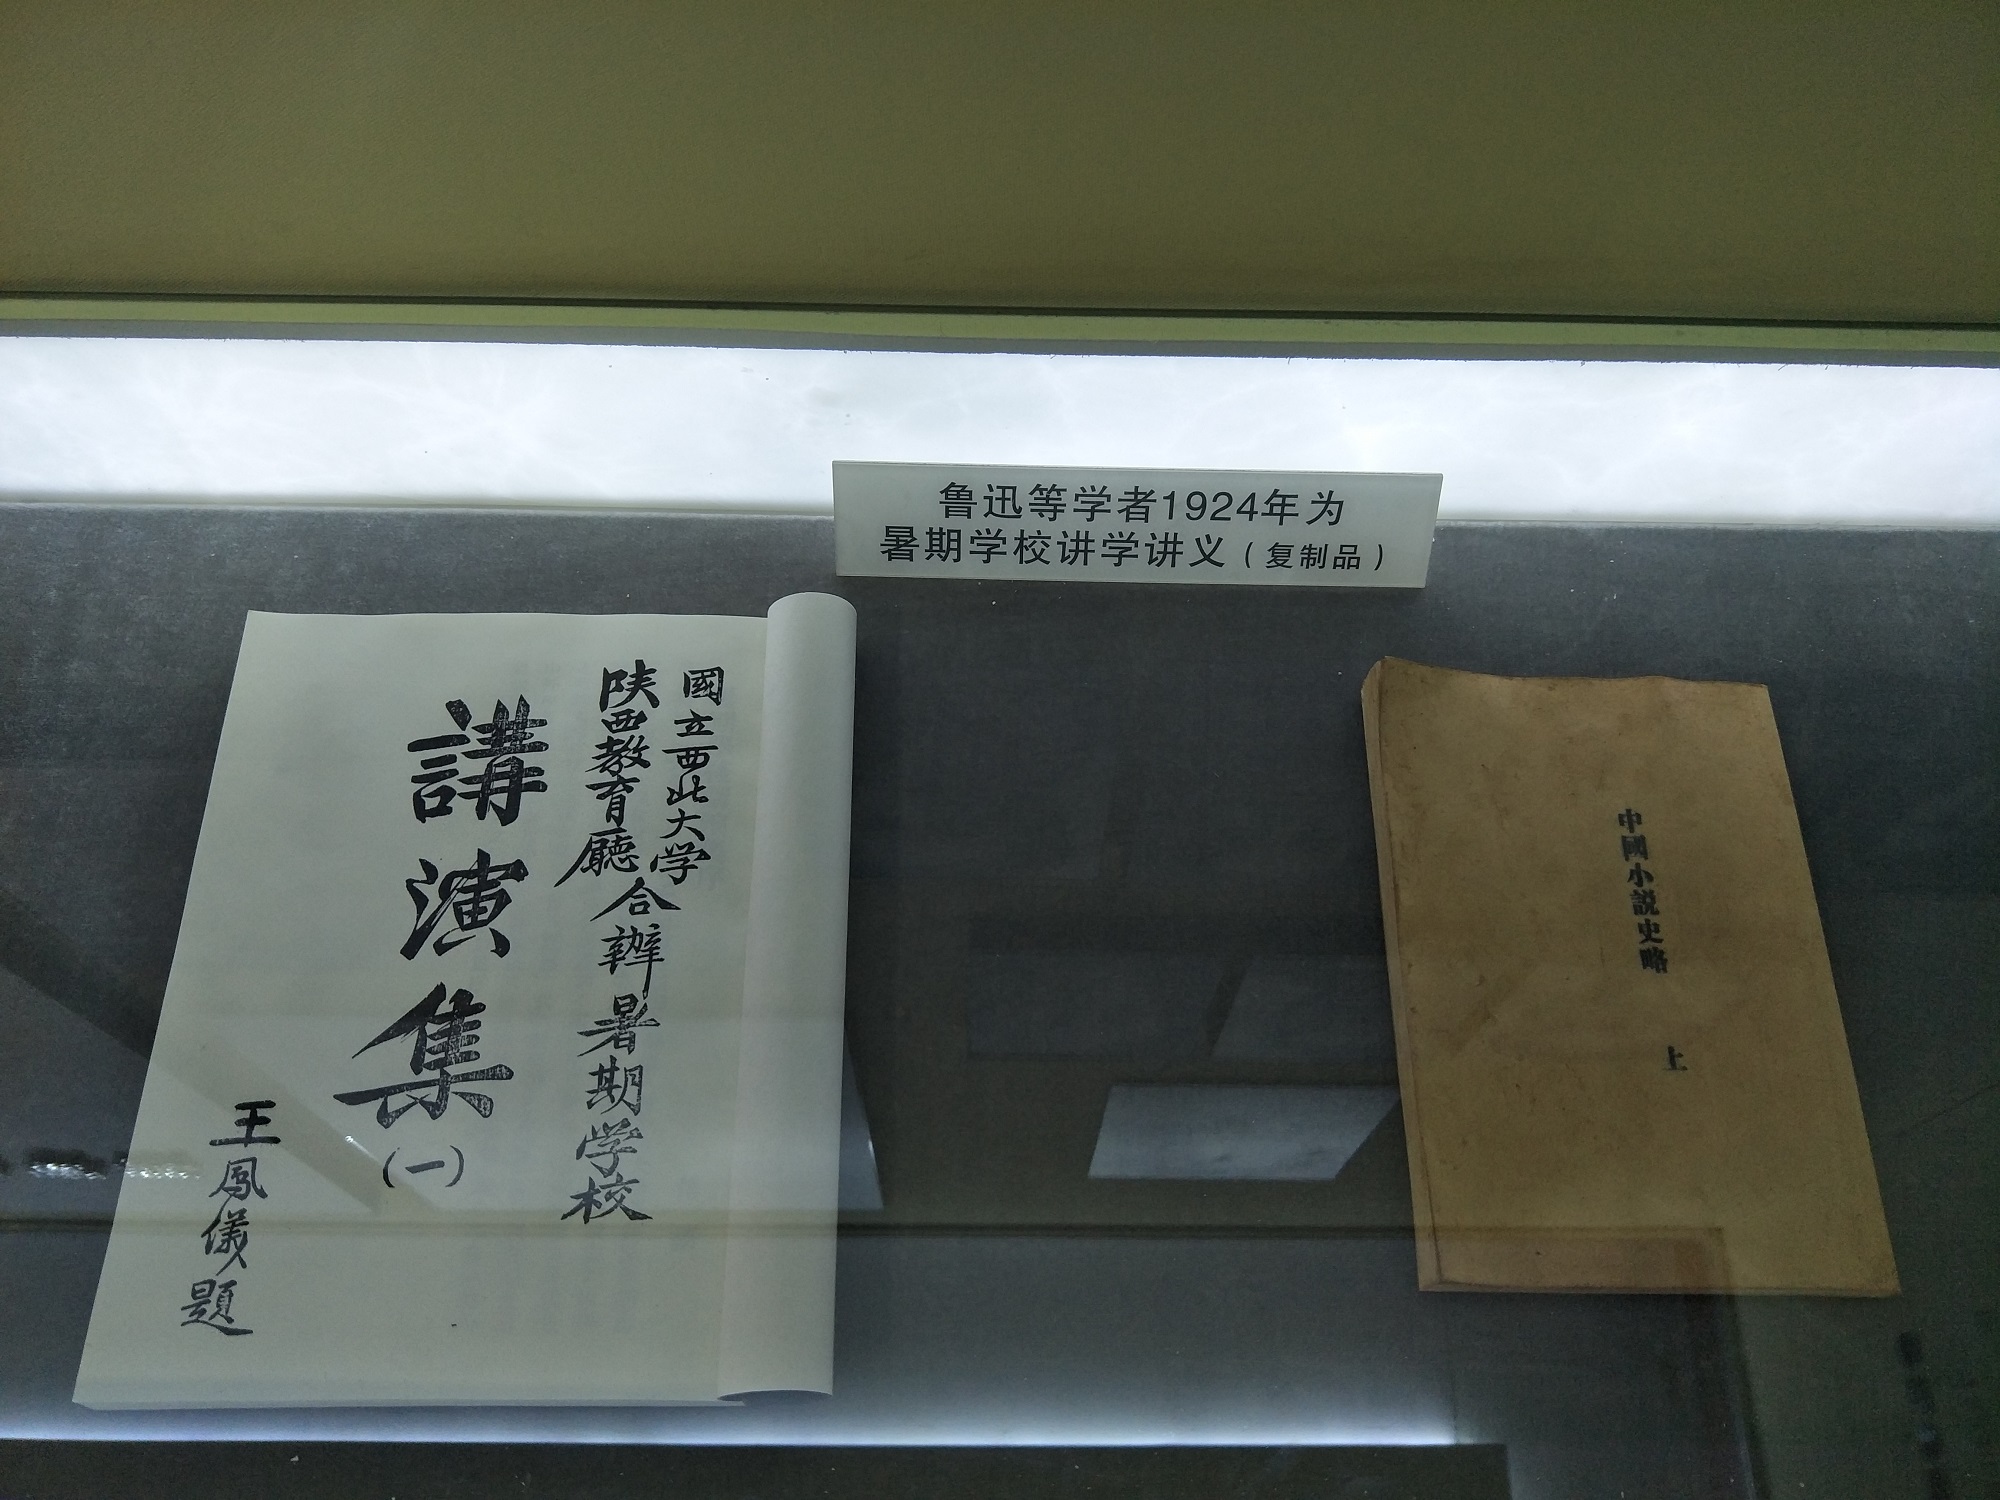 鲁迅等学者1924年为
暑期学校讲学讲义（复制品）
國立西北大学
陕西教育廳
合辦暑期学校
講演集
（一）
王鳳儀題
中國小説史略
上